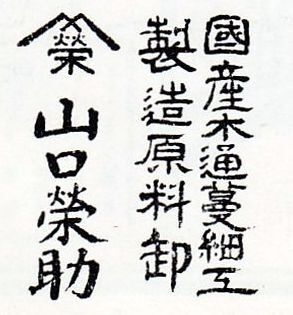 國産木通蔓細工
製造原料卸
榮
山口榮助